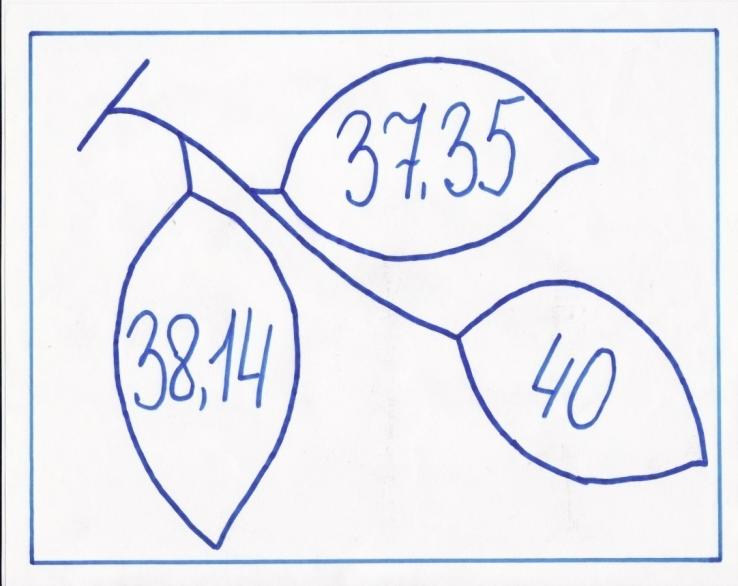 37,35
38,14
40